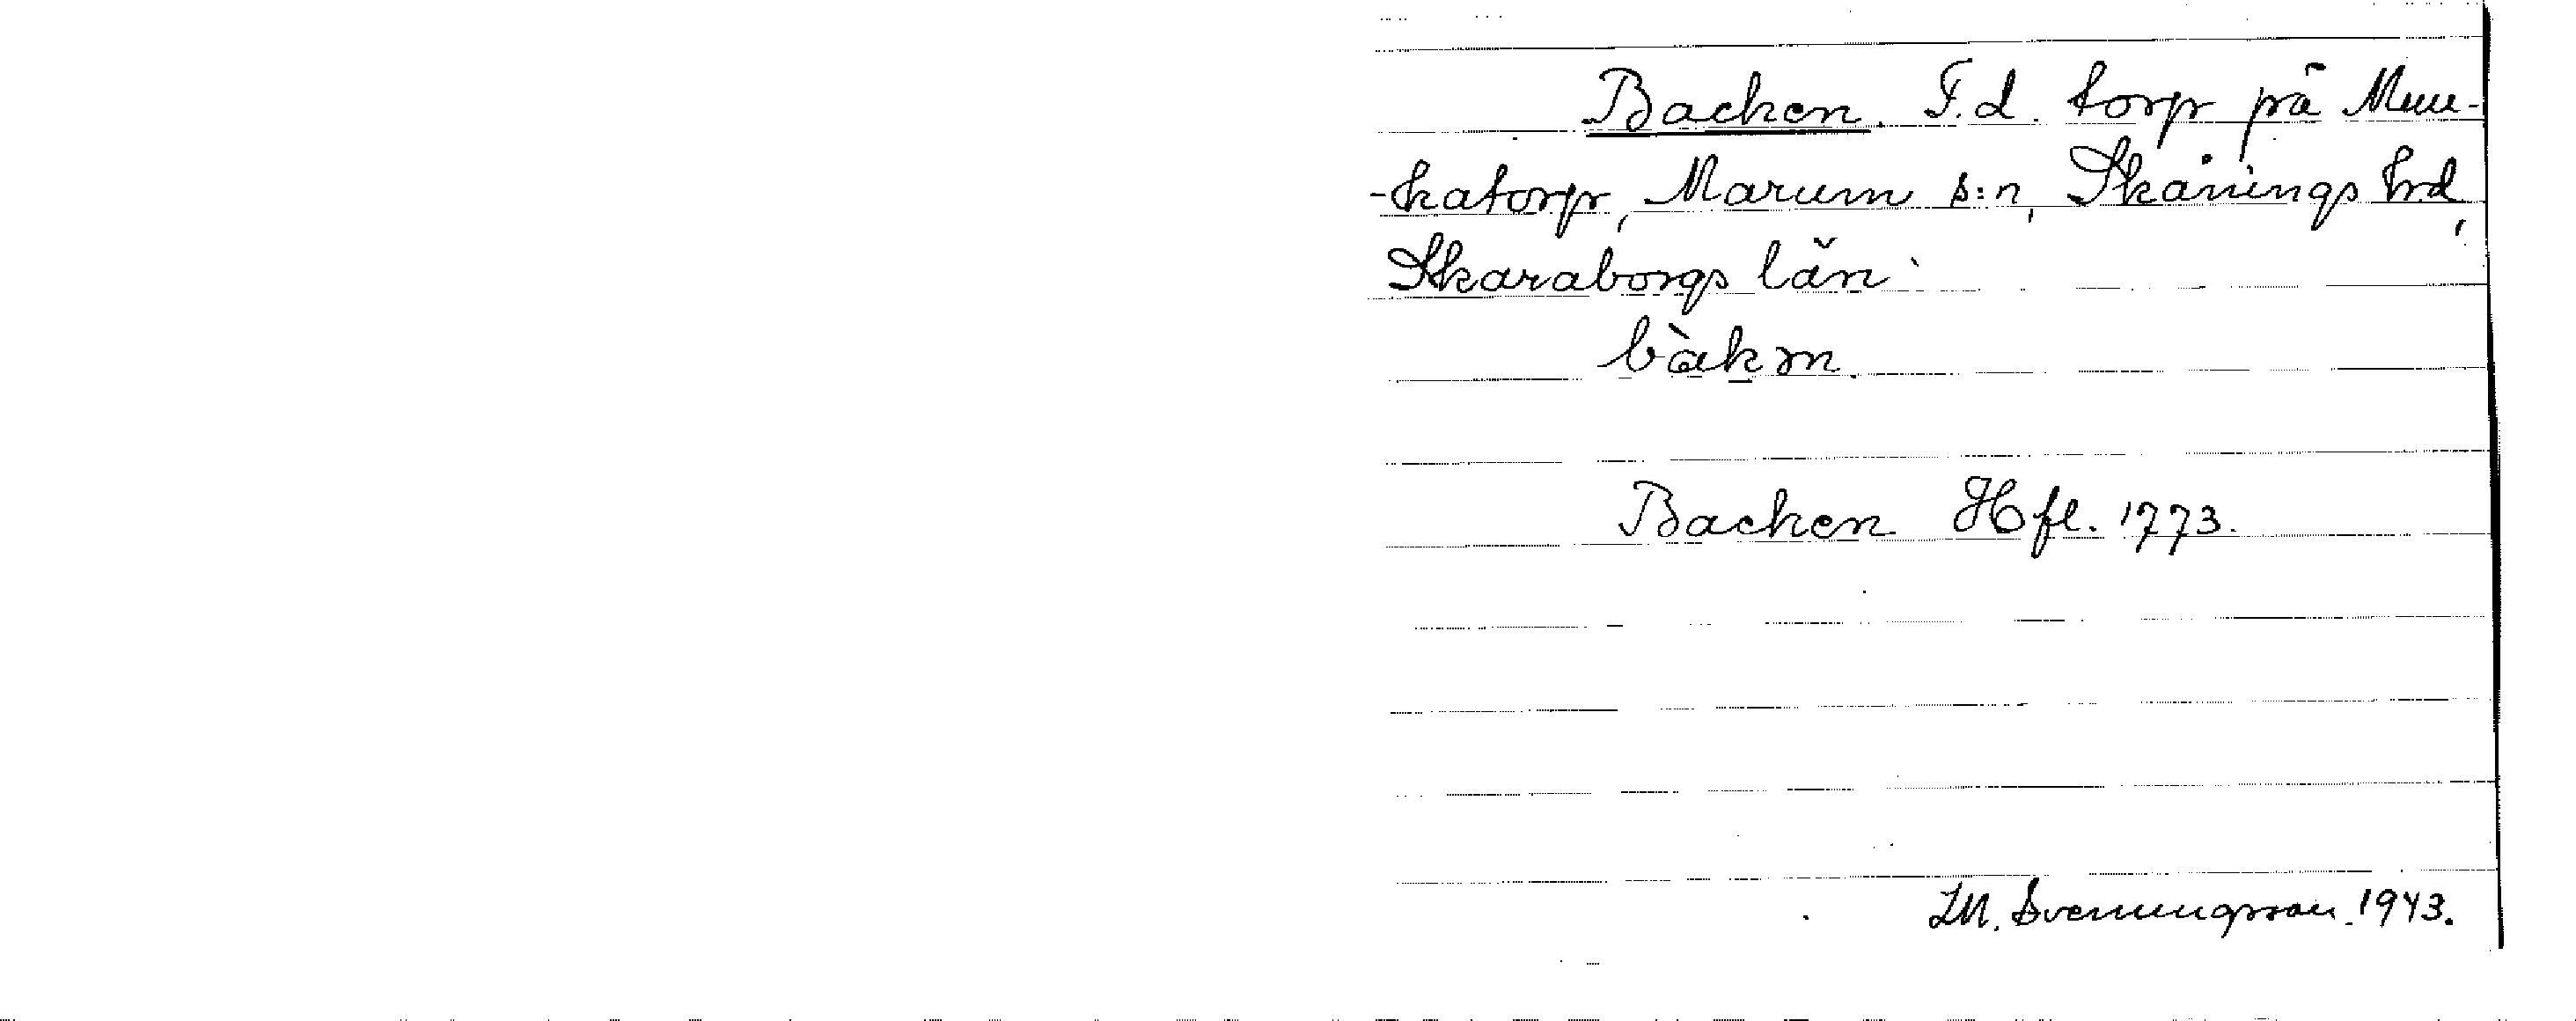 Backen. F.d. torp på Mun-
-katorp, Marum s:n, Skånings hd,
Skaraborgs län
bàkm.
Backen Hfl. 1773.
I.M. Svenungsson. 1943.